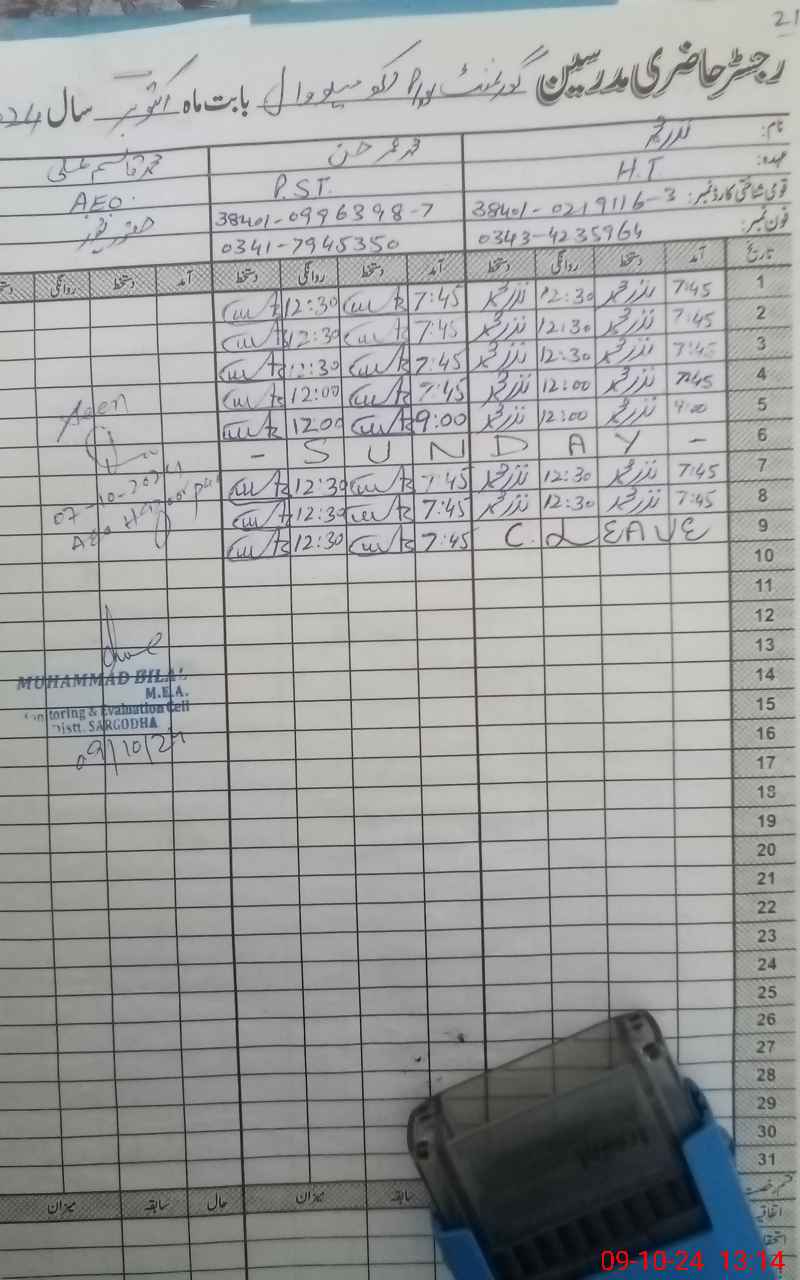 21
رجسٹر حاضری مدرسین گورنمنٹ بابت ماہ اکتوبر سال 2024
نام: نذر محمد محمد عمر حسن محمد قاسم علی
عہدہ: H.T. P.S.T. AEO.
قومی شناختی کارڈ نمبر: 38401-0219116-3 38401-0996398-7 حضور پور
فون نمبر: 0343-4235964 0341-7945350
تاریخ آمد دستخط روانگی دستخط آمد دستخط روانگی دستخط آمد دستخط روانگی
1 7:45 نذر محمد 12:30 نذر محمد 7:45 12:30
2 7:45 نذر محمد 12:30 نذر محمد 7:45 12:30
3 7:45 نذر محمد 12:30 نذر محمد 7:45 12:30
4 7:45 نذر محمد 12:00 نذر محمد 7:45 12:00
5 9:00 نذر محمد 12:00 نذر محمد 9:00 12:00
6 - S U N D A Y -
7 7:45 نذر محمد 12:30 نذر محمد 7:45 12:30
8 7:45 نذر محمد 12:30 نذر محمد 7:45 12:30
9 C. LEAVE 7:45 12:30
10
11
12
13
14
15
16
17
18
19
20
21
22
23
24
25
26
27
28
29
30
31
Seen
07-10-2024
AEO Hazoor pur
MUHAMMAD BILAL
M.E.A.
Monitoring & Evaluation Cell
Distt. SARGODHA
09/10/24
سابقہ میزان حال سابقہ میزان
اتفاقیہ
09-10-24 13:14